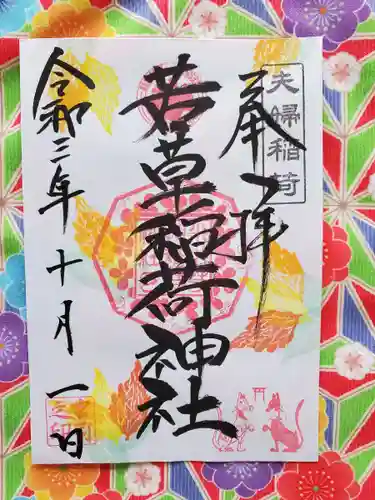 夫婦稲荷
奉拝
若草稲荷神社
令和二年十月一日